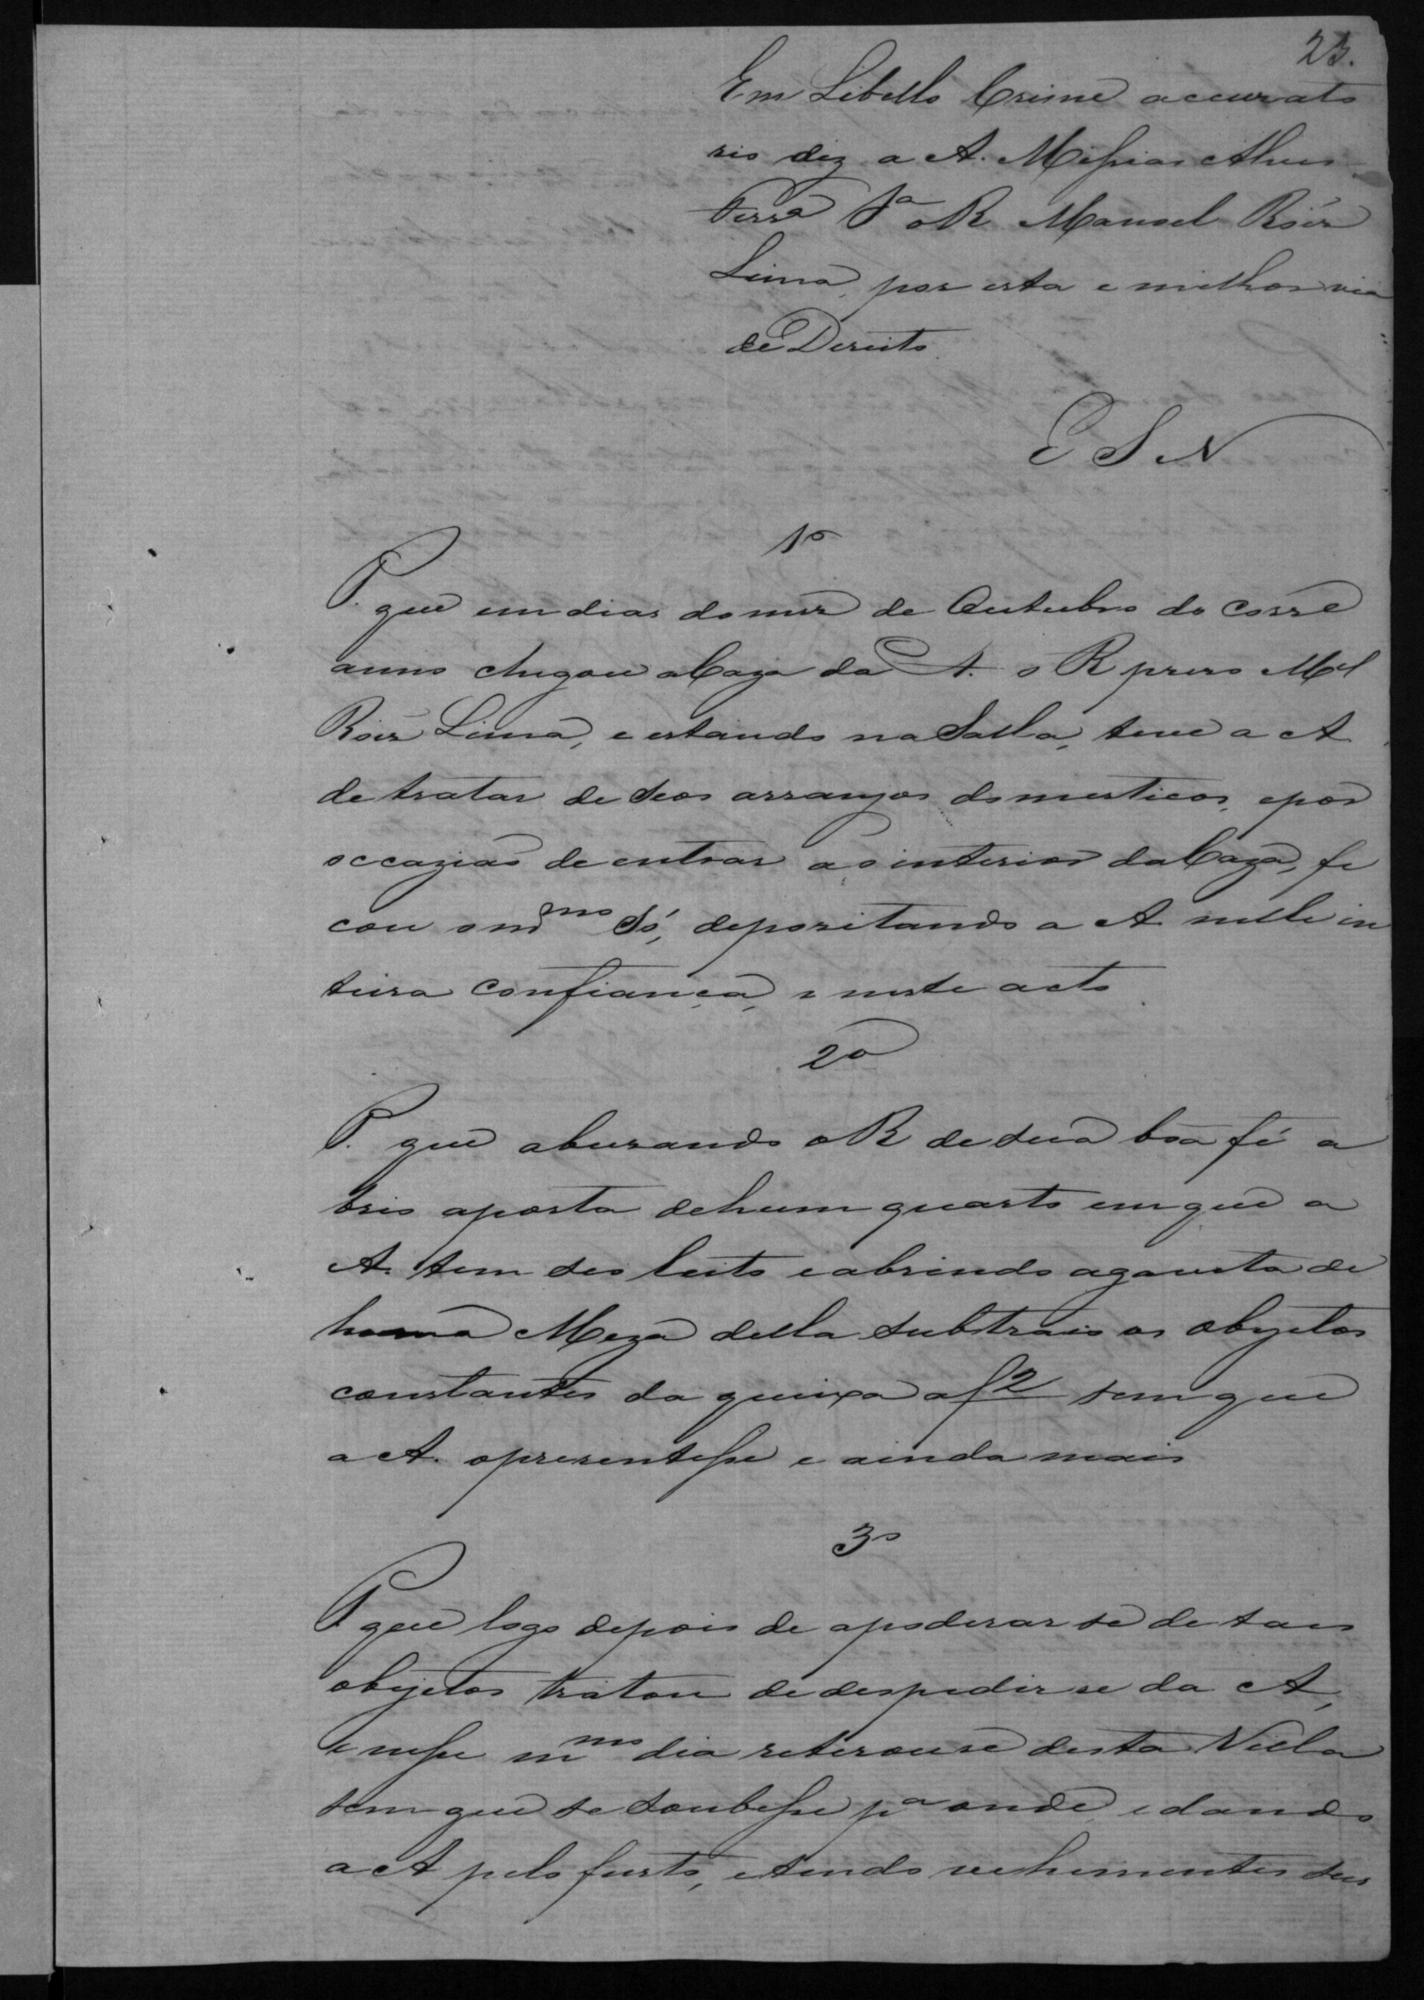 23.
Em Libello Crime accusato
rio diz a A. Messias Alves
Ferrª Sª o R Manoel Roiz
Lima, por esta e milhor via
de Dereito
E S N
1º
P. que em dias do mez de Outubro do corrᵉ
anno chegou a Caza da A. o R prezo Mel
Roiz Lima, e estando na Salla, teve a A
de tratar de seos arranjos domesticos, e por
occazião de entrar ao interior da Caza, fi
cou o mmo Só, depozitando a A nelle in
teira confiança, e neste acto
2º
P. que abuzando o R de sua boa fé a
brio a porta de hum quarto em que a
A. tem seo leito e abrindo a gaveta de
huma Meza della subtraio os objetos
constantes da queixa a f 2 sem que
a A. o presentisse e ainda mais
3º
P que logo depois de apoderar se de taes
objetos tratou de despedir se da A,
e nesse mmo dia retirou se desta Villa
sem que se soubesse pª onde, e dando
a A pelo furto, e tendo vehementes sus